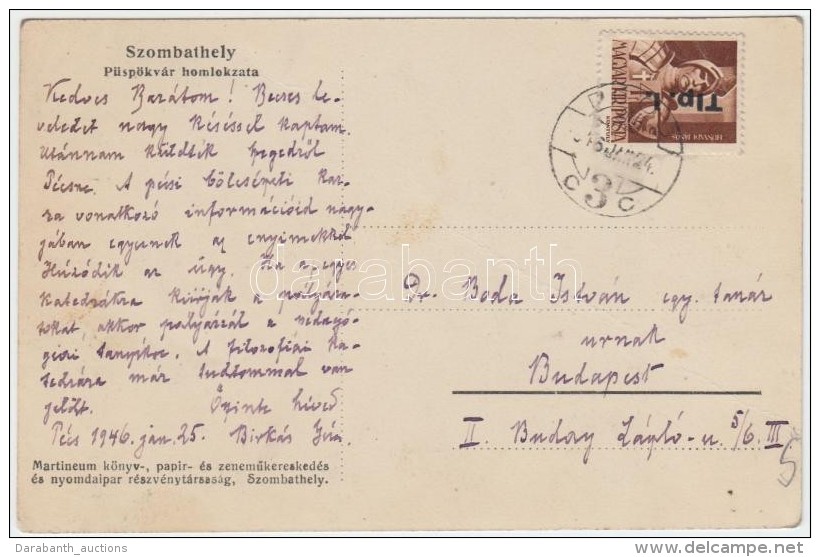 Szombathely
Püspökvár homlokzata
Kedves Barátom! Becses le-
veledet nagy késéssel kaptam.
Utánnam küldték Szegedről
Pécsre. A pécsi bölcsészeti kar-
ra vonatkozó információid nagy-
jában egyeznek az enyimekkel.
Húzódik az ügy. Ha az egyes
katedrákra kiírják a pályáza-
tokat, akkor pályázzál a pedagó-
giai tanszékre. A filozófiai ka-
tedrára már tudtommal van
jelölt. Őszinte híved
Pécs 1946. jan. 25. Birkás Géza
Martineum könyv-, papir- és zeneműkereskedés
és nyomdaipar részvénytársaság, Szombathely.
MAGYAR KIR. POSTA
Tlp. I.
3
C C
Dr. Boda István egy. tanár
urnak
Budapest
II. Buday László-u. 5/b. III
5
darabanth
Darabanth_auctions
delcampe.net